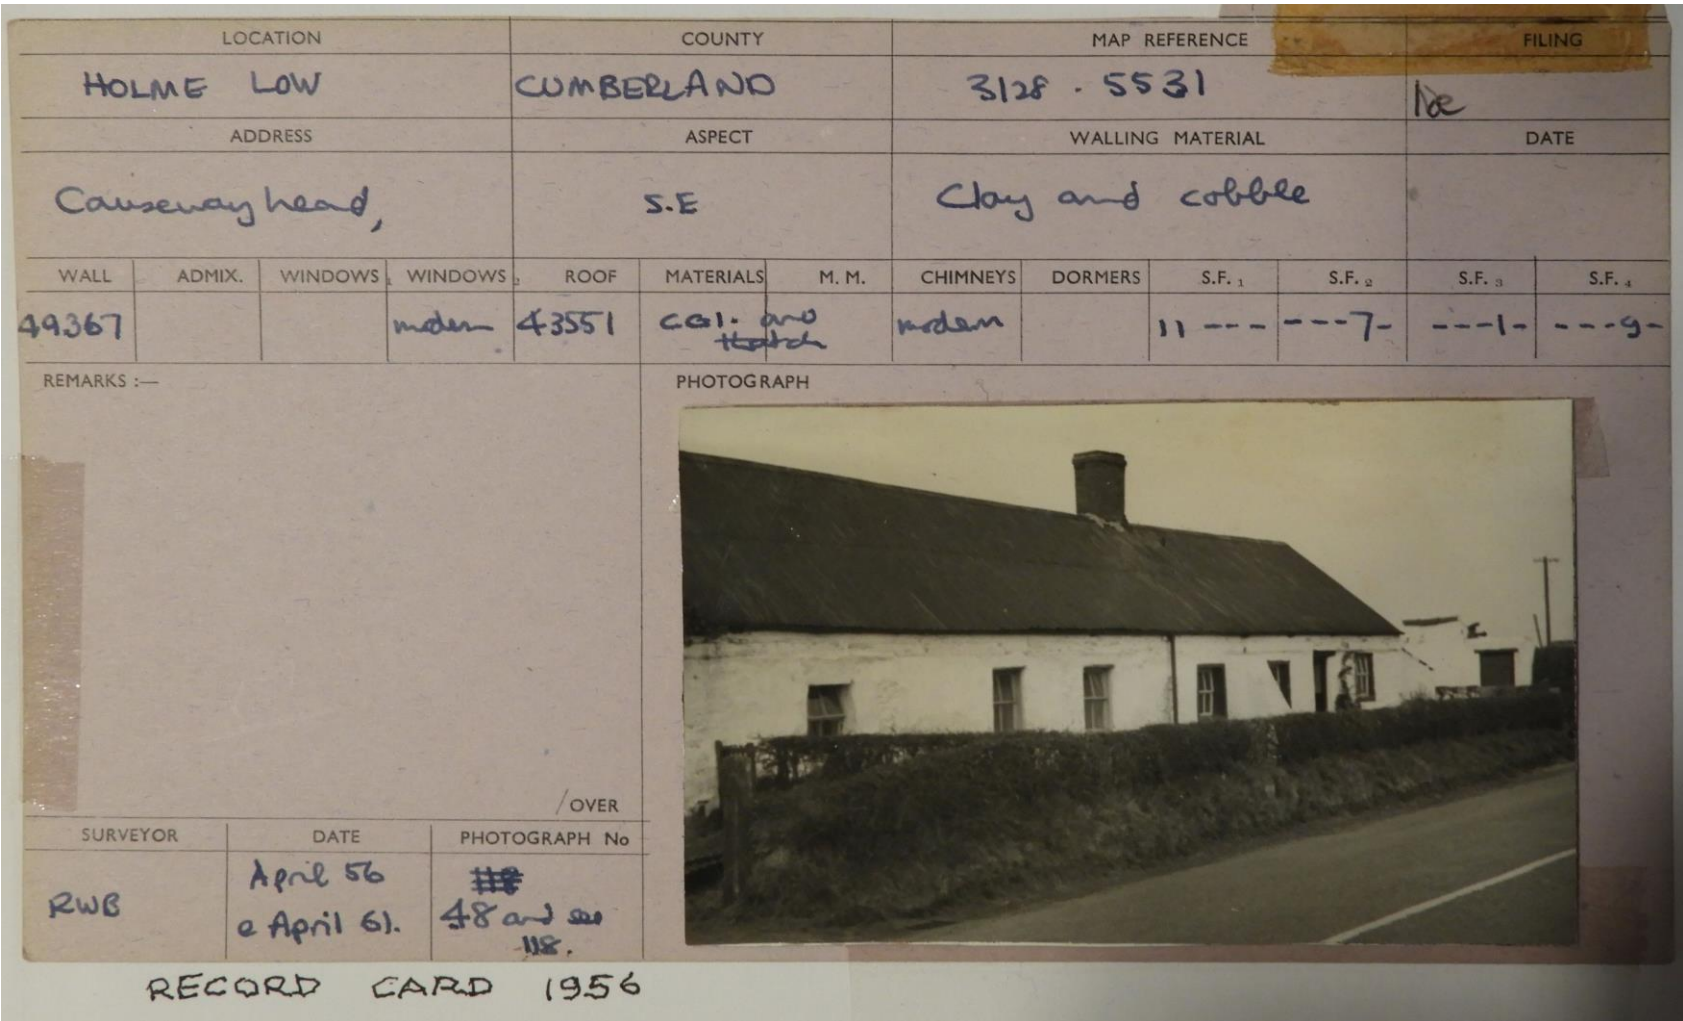 LOCATION COUNTY MAP REFERENCE FILING
HOLME LOW CUMBERLAND 3128 . 5531
ADDRESS ASPECT WALLING MATERIAL DATE
Causewayhead, S.E Clay and cobble
WALL ADMIX. WINDOWS 1 WINDOWS 2 ROOF MATERIALS M. M. CHIMNEYS DORMERS S.F. 1 S.F. 2 S.F. 3 S.F. 4
49367 modern 43551 C.G.I. and modern 11 --- ---7- ---1- ---9-
thatch
REMARKS :— PHOTOGRAPH
/OVER
SURVEYOR DATE PHOTOGRAPH No
April 56
RWB e April 61. 48 and see
118.
RECORD CARD 1956